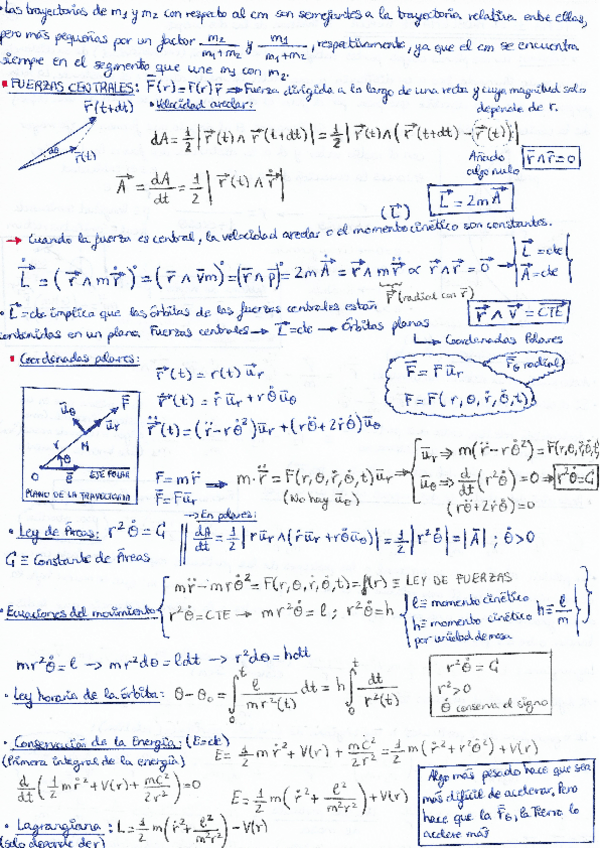 • Las trayectorias de m₁ y m₂ con respecto al cm son semejantes a la trayectoria relativa entre ellas,
pero más pequeñas por un factor m₂/(m₁+m₂) y m₁/(m₁+m₂), respectivamente, ya que el cm se encuentra
siempre en el segmento que une m₁ con m₂.
• FUERZAS CENTRALES: F⃗(r) = F(r) r̄ ⇒ Fuerza dirigida a lo largo de una recta y cuya magnitud solo
depende de r.
r⃗(t+dt)
• Velocidad areolar:
dθ
r⃗(t)
dA = 1/2 |r⃗(t) ∧ r⃗(t+dt)| = 1/2 |r⃗(t) ∧ (r⃗(t+dt) - r⃗(t))|
Añado
algo nulo
r̄∧r̄=0
A⃗ = dA/dt = 1/2 |r⃗(t) ∧ ṙ⃗|
(L⃗)
L⃗ = 2mA⃗
→ Cuando la fuerza es central, la velocidad areolar o el momento cinético son constantes.
L̇⃗ = (r⃗ ∧ mṙ⃗)˙ = (r̄ ∧ v̄m)˙ = (r̄ ∧ p̄)˙ = 2mȦ⃗ = r⃗ ∧ m r̈⃗ ∝ r⃗ ∧ r⃗ = 0⃗ →
L⃗=cte
A⃗=cte
F⃗ (radial con r̄)
• L⃗=cte implica que las órbitas de las fuerzas centrales están
contenidas en un plano. Fuerzas centrales → L⃗=cte → Órbitas planas
r⃗ ∧ v⃗ = CTE
→ Coordenadas Polares
• Coordenadas polares:
r⃗(t) = r(t) u⃗r
ṙ⃗(t) = ṙ u⃗r + rθ̇ u⃗θ
r̈⃗(t) = (r̈ - rθ̇²) u⃗r + (rθ̈ + 2ṙθ̇) u⃗θ
F̄ = F u⃗r
radial
F = F(r, θ, ṙ, θ̇, t)
u⃗θ
u⃗r
F⃗
r
M
θ
O
e⃗
EJE POLAR
PLANO DE LA TRAYECTORIA
F⃗ = m r̈⃗
F̄ = F ūr
→ m·r̈⃗ = F(r, θ, ṙ, θ̇, t) u⃗r →
(No hay u⃗θ)
ūr ⇒ m(r̈ - rθ̇²) = F(r, θ, ṙ, θ̇, t)
ūθ ⇒ d/dt (r²θ̇) = 0 → r²θ̇ = G
(rθ̈ + 2ṙθ̇) = 0
→ En polares:
• Ley de Áreas: r²θ̇ = G
dA/dt = 1/2 |r ūr ∧ (ṙ ūr + rθ̇ ūθ)| = 1/2 |r²θ̇| = |Ā| ; θ̇ > 0
G ≡ Constante de Áreas
• Ecuaciones del movimiento
mr̈ - mrθ̇² = F(r, θ, ṙ, θ̇, t) = f(r) ≡ LEY DE FUERZAS
r²θ̇ = CTE → mr²θ̇ = ℓ ; r²θ̇ = h
ℓ ≡ momento cinético
h ≡ momento cinético
por unidad de masa
h ≡ ℓ/m
mr²θ̇ = ℓ → mr²dθ = ℓdt → r²dθ = hdt
• Ley horaria de la órbita: θ - θ₀ = ∫₀ᵗ ℓ/(mr²(t)) dt = h ∫₀ᵗ dt/r²(t)
r²θ̇ = G
r² > 0
θ̇ conserva el signo
• Conservación de la Energía: (E=cte)
(Primera integral de la energía)
E = 1/2 mṙ² + V(r) + mC²/2r² = 1/2 m(ṙ² + r²θ̇²) + V(r)
d/dt (1/2 mṙ² + V(r) + mC²/2r²) = 0
E = 1/2 m(ṙ² + ℓ²/m²r²) + V(r)
Algo más pesado hace que sea
más difícil de acelerar. Pero
hace que la la Tierra lo
acelere más
• Lagrangiana: L = 1/2 m(ṙ² + ℓ²/m²r²) - V(r)
(solo depende de r)